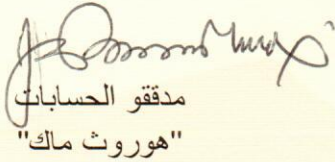 مدققو الحسابات
"هوروث ماك"